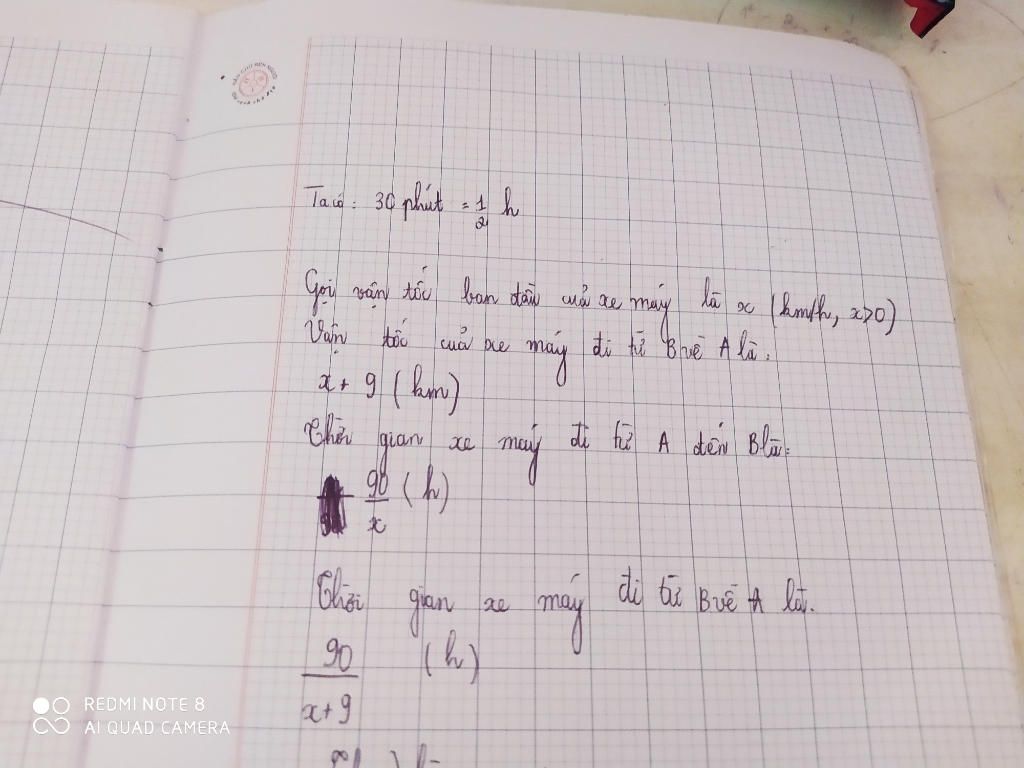 Ta có: 30 phút = 1/2 h
Gọi vận tốc ban đầu của xe máy là x (km/h, x>0)
Vận tốc của xe máy đi từ B về A là:
x + 9 (km)
Thời gian xe máy đi từ A đến B là:
90/x (h)
Thời gian xe máy đi từ B về A là.
90/(x+9) (h)
REDMI NOTE 8
AI QUAD CAMERA